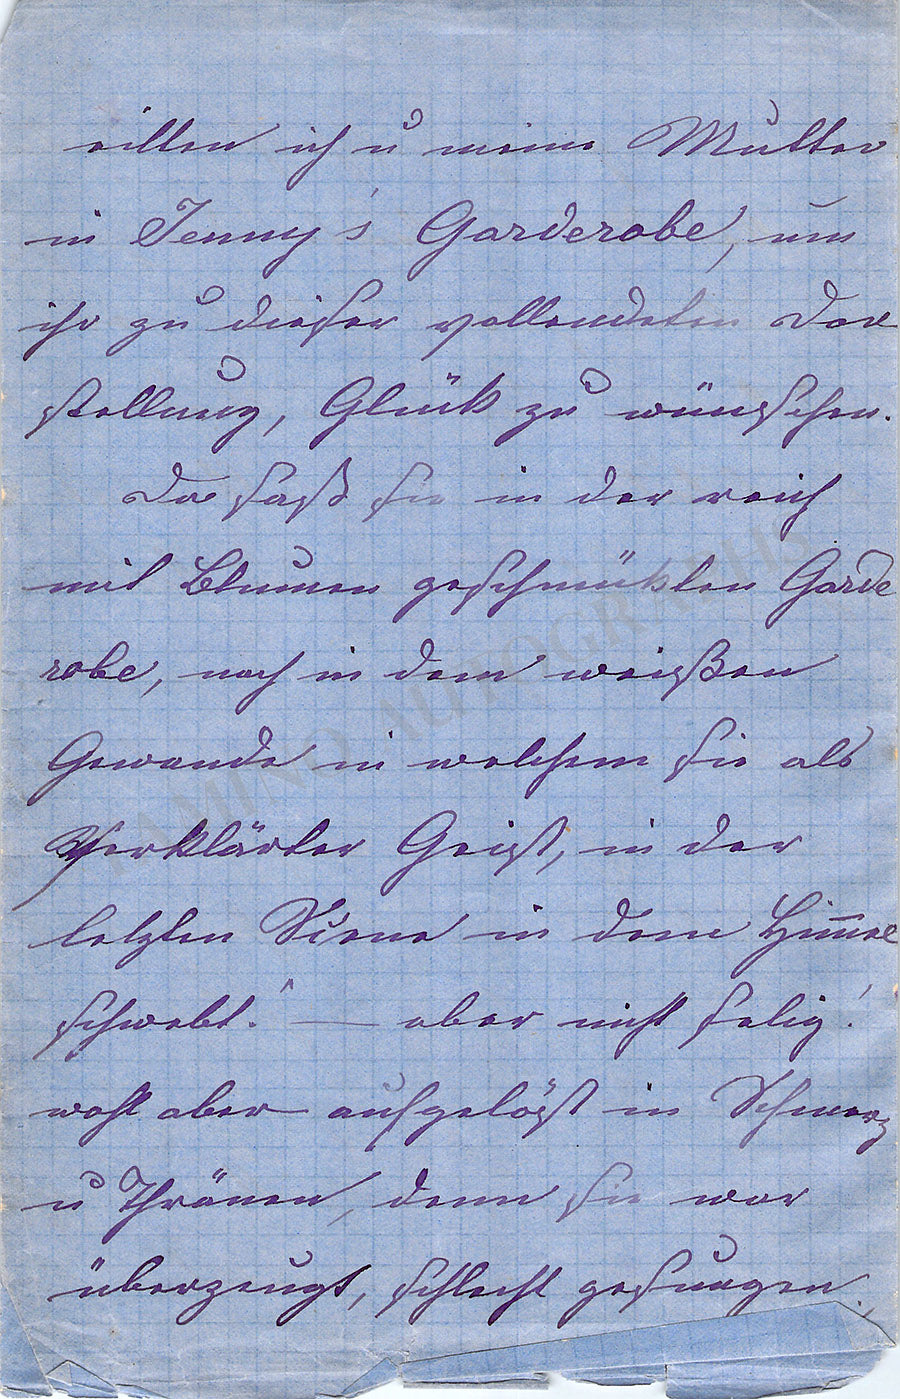 eilten ich u meine Mutter
in Jenny's Garderobe, um
ihr zu dieser vollendeten Dar
stellung, Glück zu wünschen.
Da saß sie in der reich
mit Blumen geschmükten Garde
robe, noch in dem weißen
Gewande in welchem sie als
Verklärter Geist, in der
letzten Scene in dem Him̅el
schwebt." — aber nicht selig!
wohl aber aufgelöst in Schmerz
u Thränen, denn sie war
überzeugt, schlecht gesungen
TAMINO AUTOGRAPHS